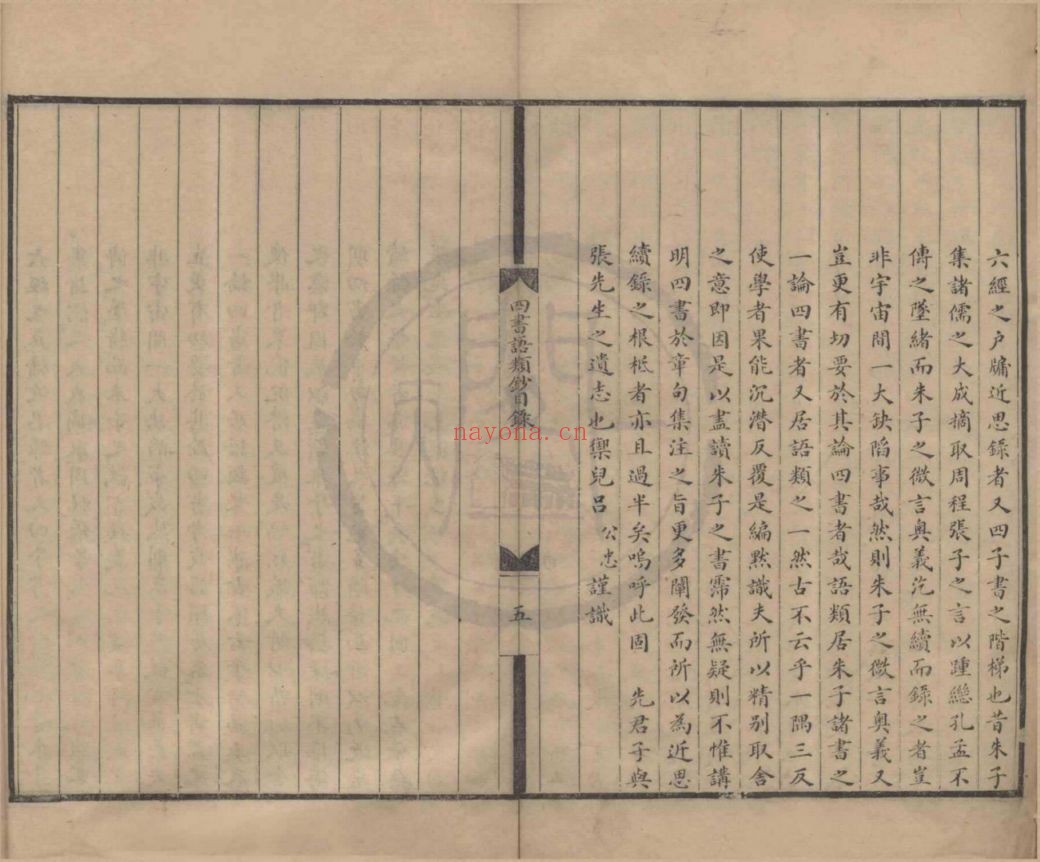 六經之户牖近思錄者又四子書之階梯也昔朱子
集諸儒之大成摘取周程張子之言以踵繼孔孟不
傳之墜緒而朱子之微言奥義汔無續而録之者豈
非宇宙間一大缺陷事哉然則朱子之微言奥義又
豈更有切要於其論四書者哉語類居朱子諸書之
一論四書者又居語類之一然古不云乎一隅三反
使學者果能沉潛反覆是編黙識夫所以精别取舍
之意即因是以盡讀朱子之書霈然無疑則不惟講
明四書於章句集注之旨更多闡發而所以為近思
續錄之根柢者亦且過半矣嗚呼此固　先君子與
張先生之遺志也禦兒呂　公忠謹識
四書語類鈔目錄
五
nayona.cn